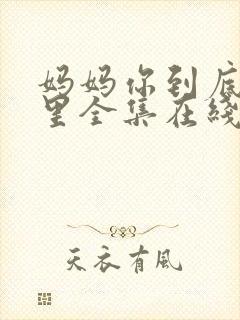 妈妈你到底
里全集在线
天衣有风